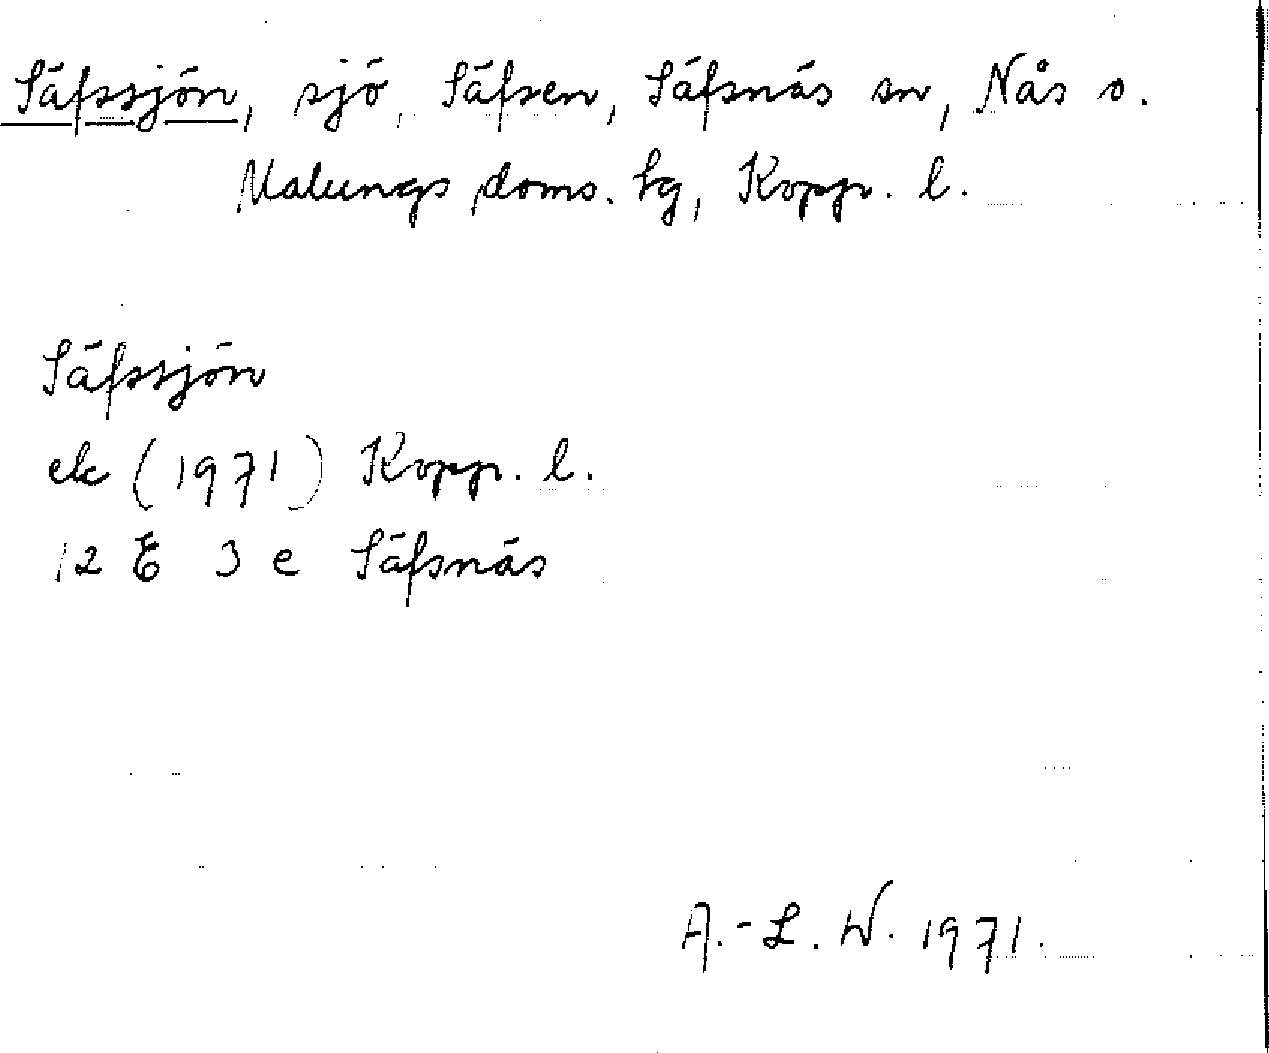 Säfssjön, sjö, Säfsen, Säfsnäs sn, Nås o.
Malungs doms. tg, Kopp. l.
Säfssjön
ek (1971) Kopp. l.
12 E 3 e Säfsnäs
A.-L. W. 1971.